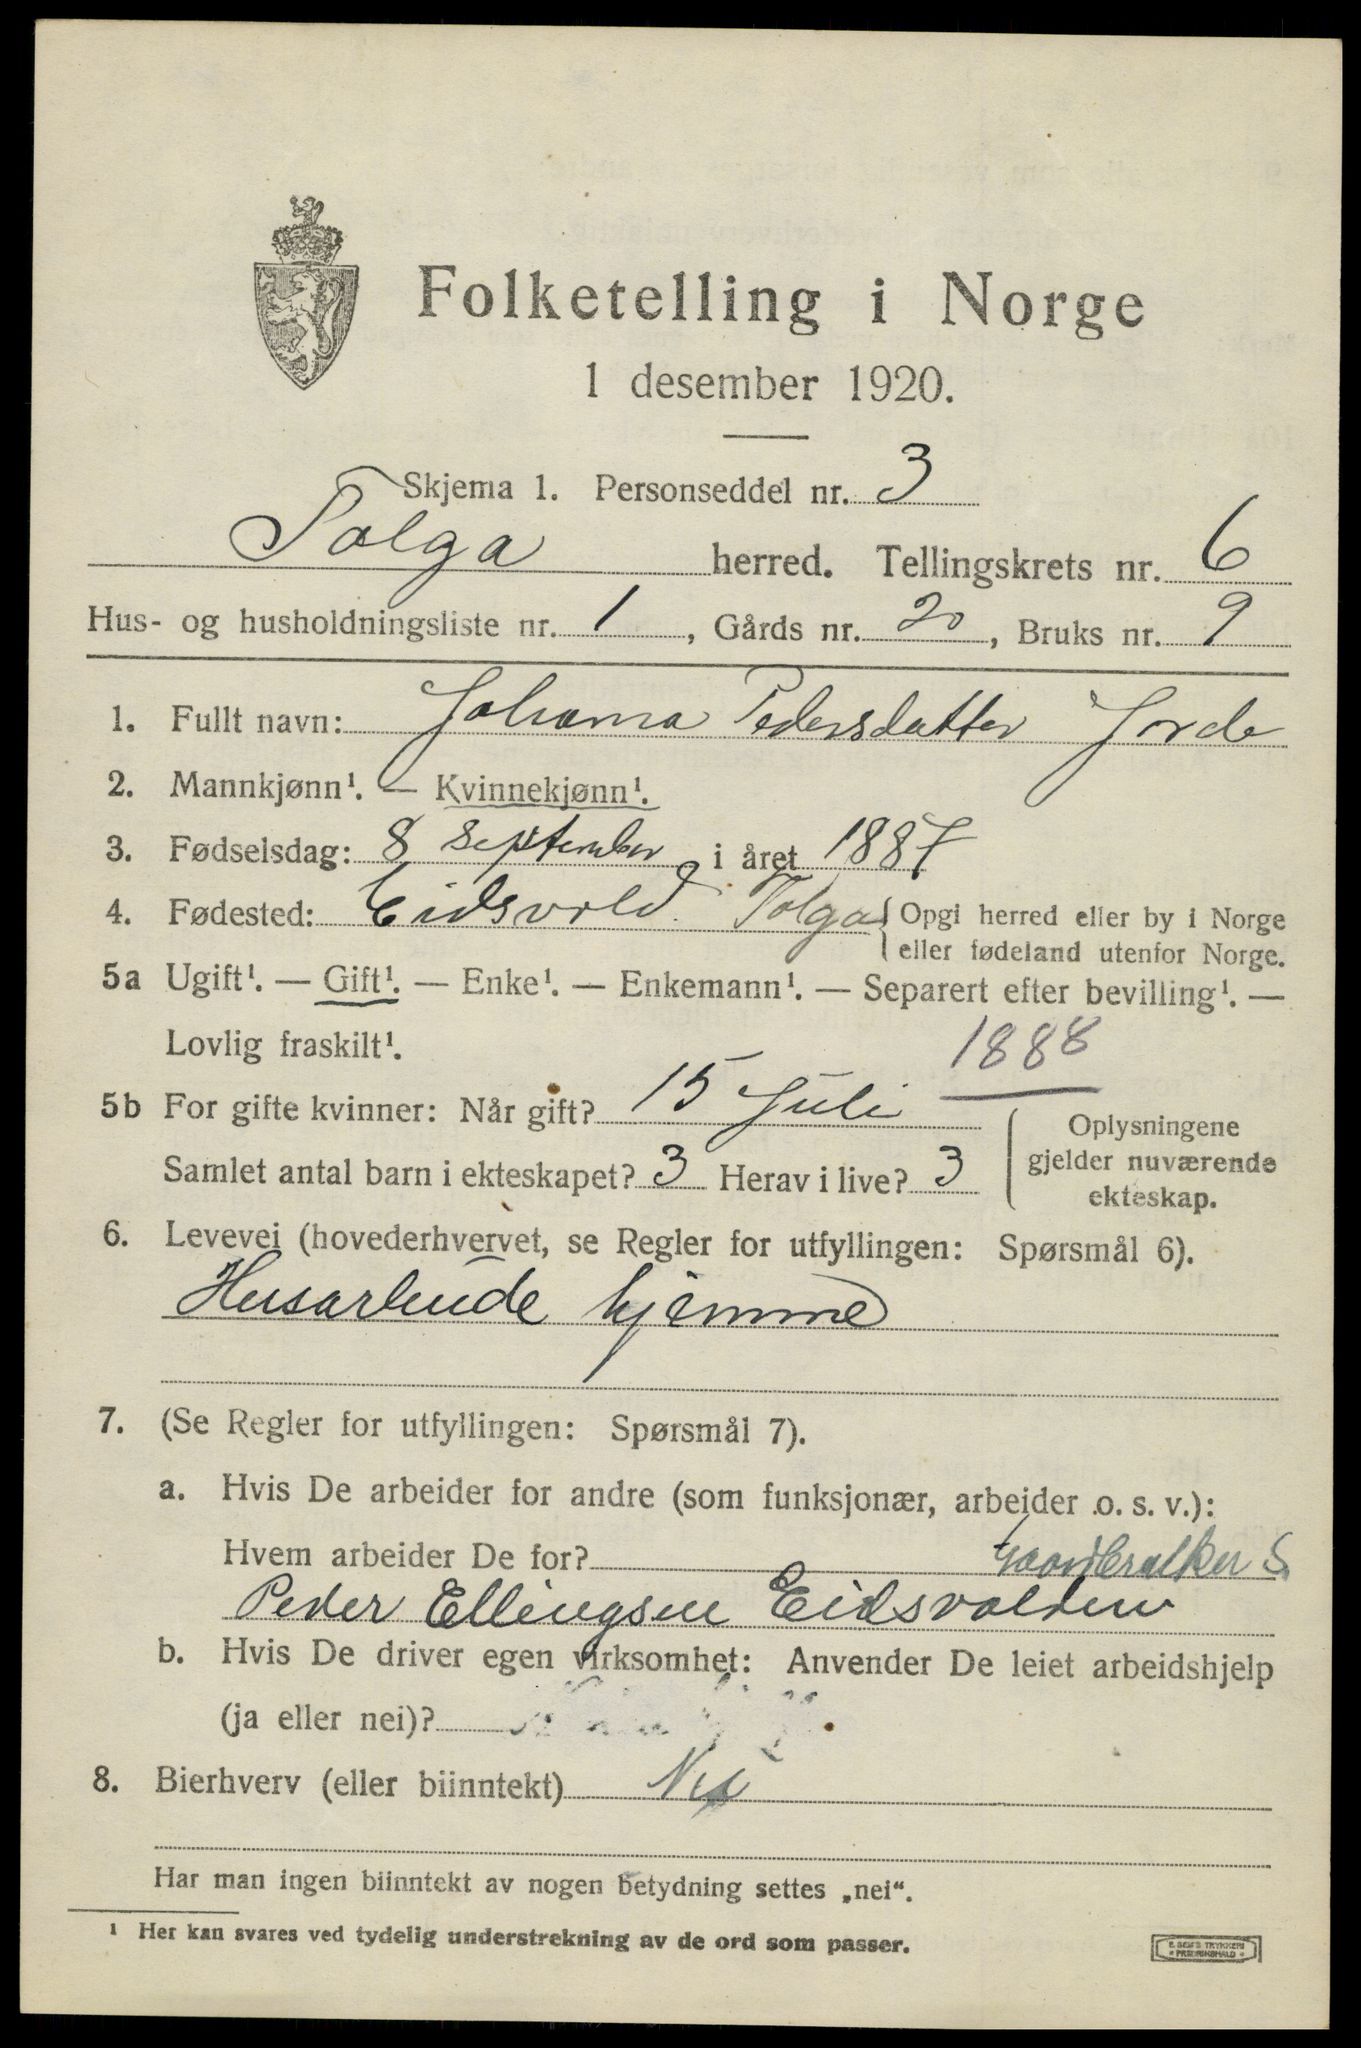 Folketelling i Norge
1 desember 1920.
Skjema 1. Personseddel nr. 3
Tolga herred. Tellingskrets nr. 6
Hus- og husholdningsliste nr. 1, Gårds nr. 20, Bruks nr. 9
1. Fullt navn: Johanna Pedersdatter Jorde
2. Mannkjønn¹. — Kvinnekjønn¹.
3. Fødselsdag: 8 september i året 1887
4. Fødested: Eidsvold. Tolga { Opgi herred eller by i Norge
eller fødeland utenfor Norge.
5a Ugift¹. — Gift¹. — Enke¹. — Enkemann¹. — Separert efter bevilling¹. —
Lovlig fraskilt¹. 1888
5b For gifte kvinner: Når gift? 15 Juli
Samlet antal barn i ekteskapet? 3 Herav i live? 3
Oplysningene
gjelder nuværende
ekteskap.
6. Levevei (hovederhvervet, se Regler for utfyllingen: Spørsmål 6).
Husarbeide hjemme
7. (Se Regler for utfyllingen: Spørsmål 7).
a. Hvis De arbeider for andre (som funksjonær, arbeider o. s. v.):
Hvem arbeider De for?
Peder Ellingsen Eidsvolden
b. Hvis De driver egen virksomhet: Anvender De leiet arbeidshjelp
(ja eller nei)?
8. Bierhverv (eller biinntekt) Nei
Har man ingen biinntekt av nogen betydning settes „nei“.
¹ Her kan svares ved tydelig understrekning av de ord som passer.
E. SEM'S TRYKKERI
FREDRIKSHALD